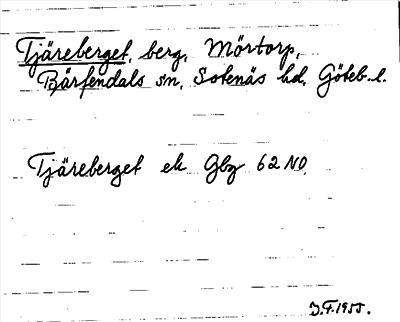 Tjäreberget, berg, Mörtorp,
Bärfendals sn, Sotenäs hd, Göteb. l.
Tjäreberget ek Gbg 62 NO.
J.F. 1955.